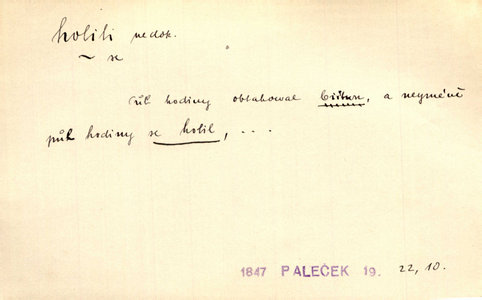 holiti nedok.
~ se
půl hodiny obtahoval břitvu, a neyméně
půl hodiny se holil, ...
1847 PALEČEK 19. 22, 10.